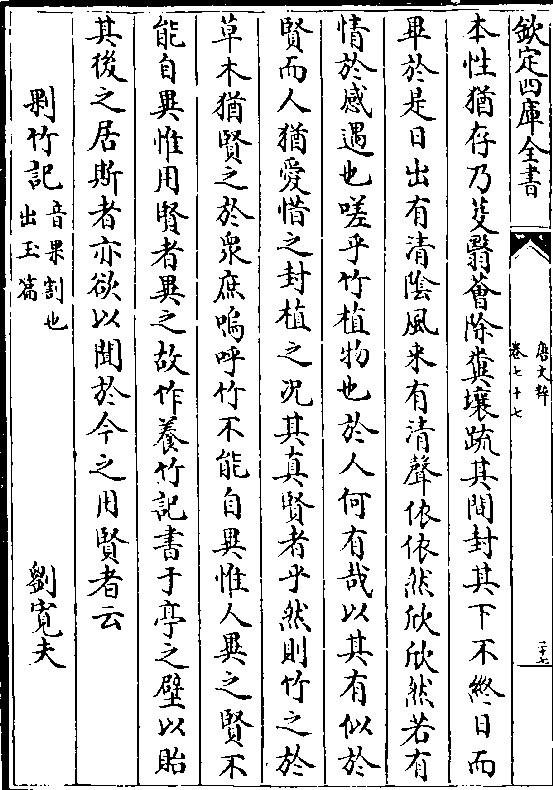 欽定四庫全書
唐文粹
卷七十七
二十七
本性猶存乃芟翳薈除糞壤疏其間封其下不終日而
畢於是日出有清陰風来有清聲依依然欣欣然若有
情於感遇也嗟乎竹植物也於人何有哉以其有似於
賢而人猶愛惜之封植之况其真賢者乎然則竹之於
草木猶賢之於衆庶嗚呼竹不能自異惟人異之賢不
能自異惟用賢者異之故作養竹記書于亭之壁以貽
其後之居斯者亦欲以聞於今之用賢者云
𠜴竹記音果割也出玉篇 劉寛夫